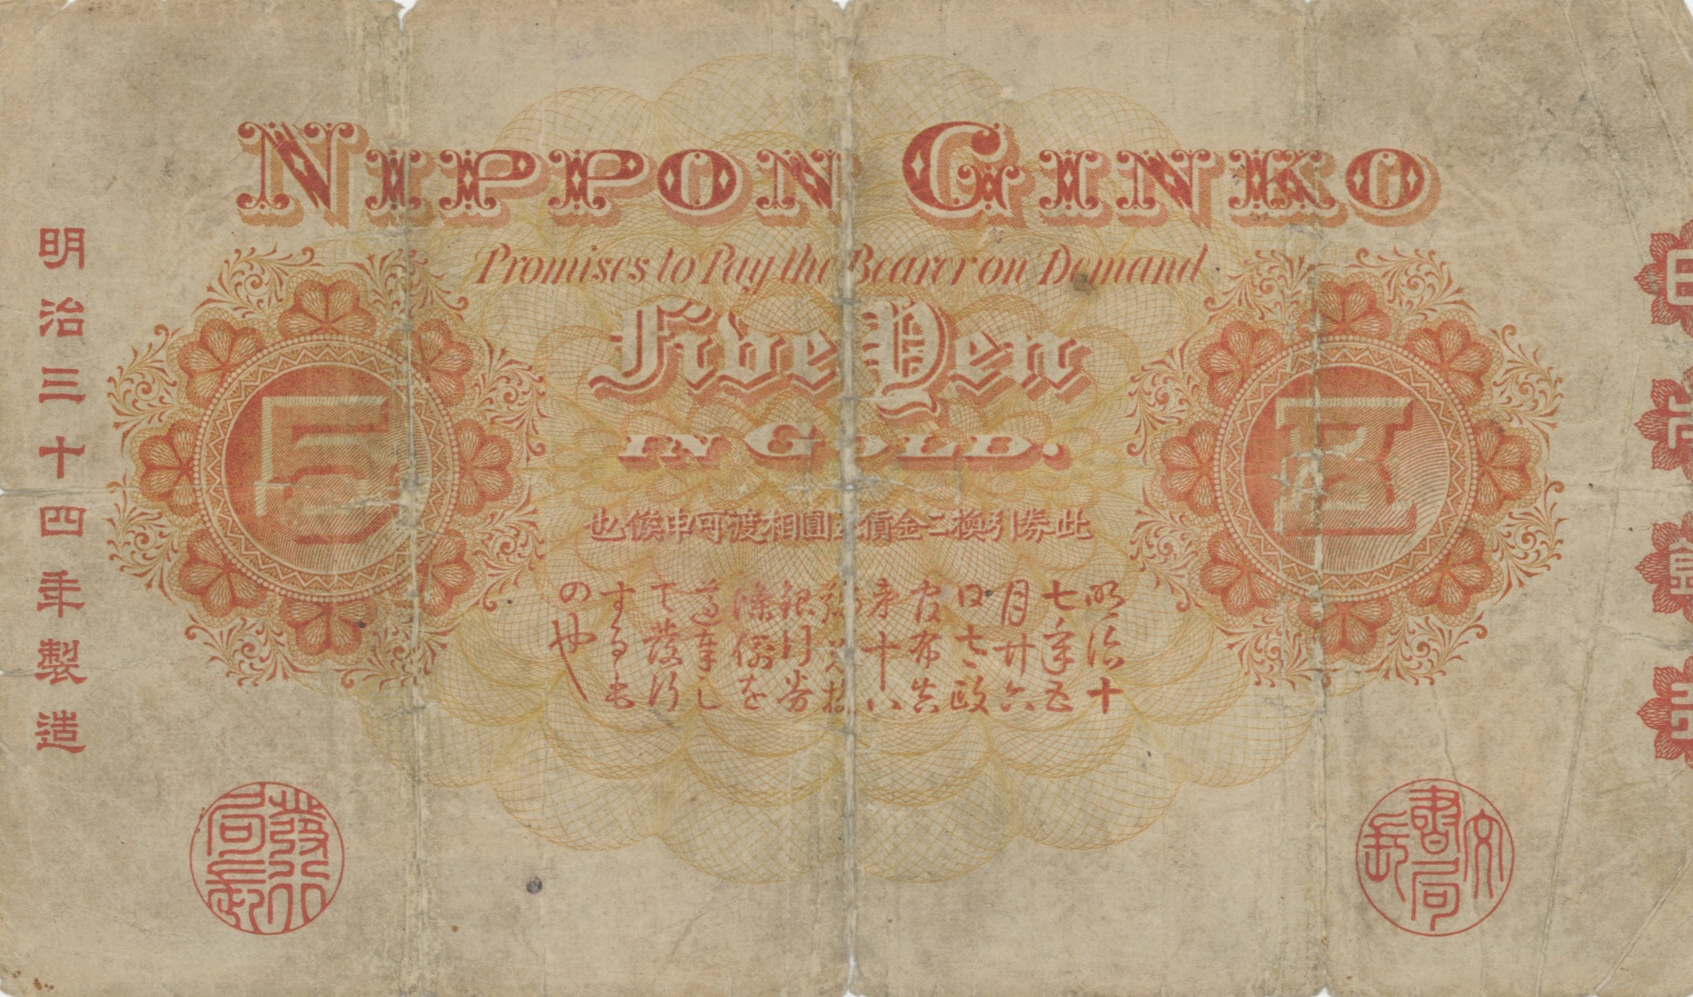 NIPPON GINKO
Promises to Pay the Bearer on Demand
Five Yen
IN GOLD.
5
五
此券引換ニ金貨五圓相渡可申候也
明治十
七年五
月廿六
日太政
官布告
第十八
號兌換
銀行券
條例を
遵奉し
て發行
するも
の也
明治三十四年製造
文書局長
發行局長